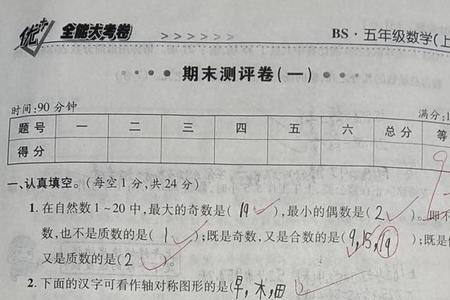 优+ 全能大考卷 >>>>>> BS·五年级数学(上
期末测评卷(一)
时间:90分钟 满分:1
题号 一 二 三 四 五 六 总分 等
得分
一、认真填空。(每空1分,共24分)
1. 在自然数1~20中,最大的奇数是( 19 ),最小的偶数是( 2 )。即不
数,也不是质数的是( 1 );既是奇数,又是合数的是( 9,15,19 );既是
又是质数的是( 2 )。
2. 下面的汉字可看作轴对称图形的是(早,木,田